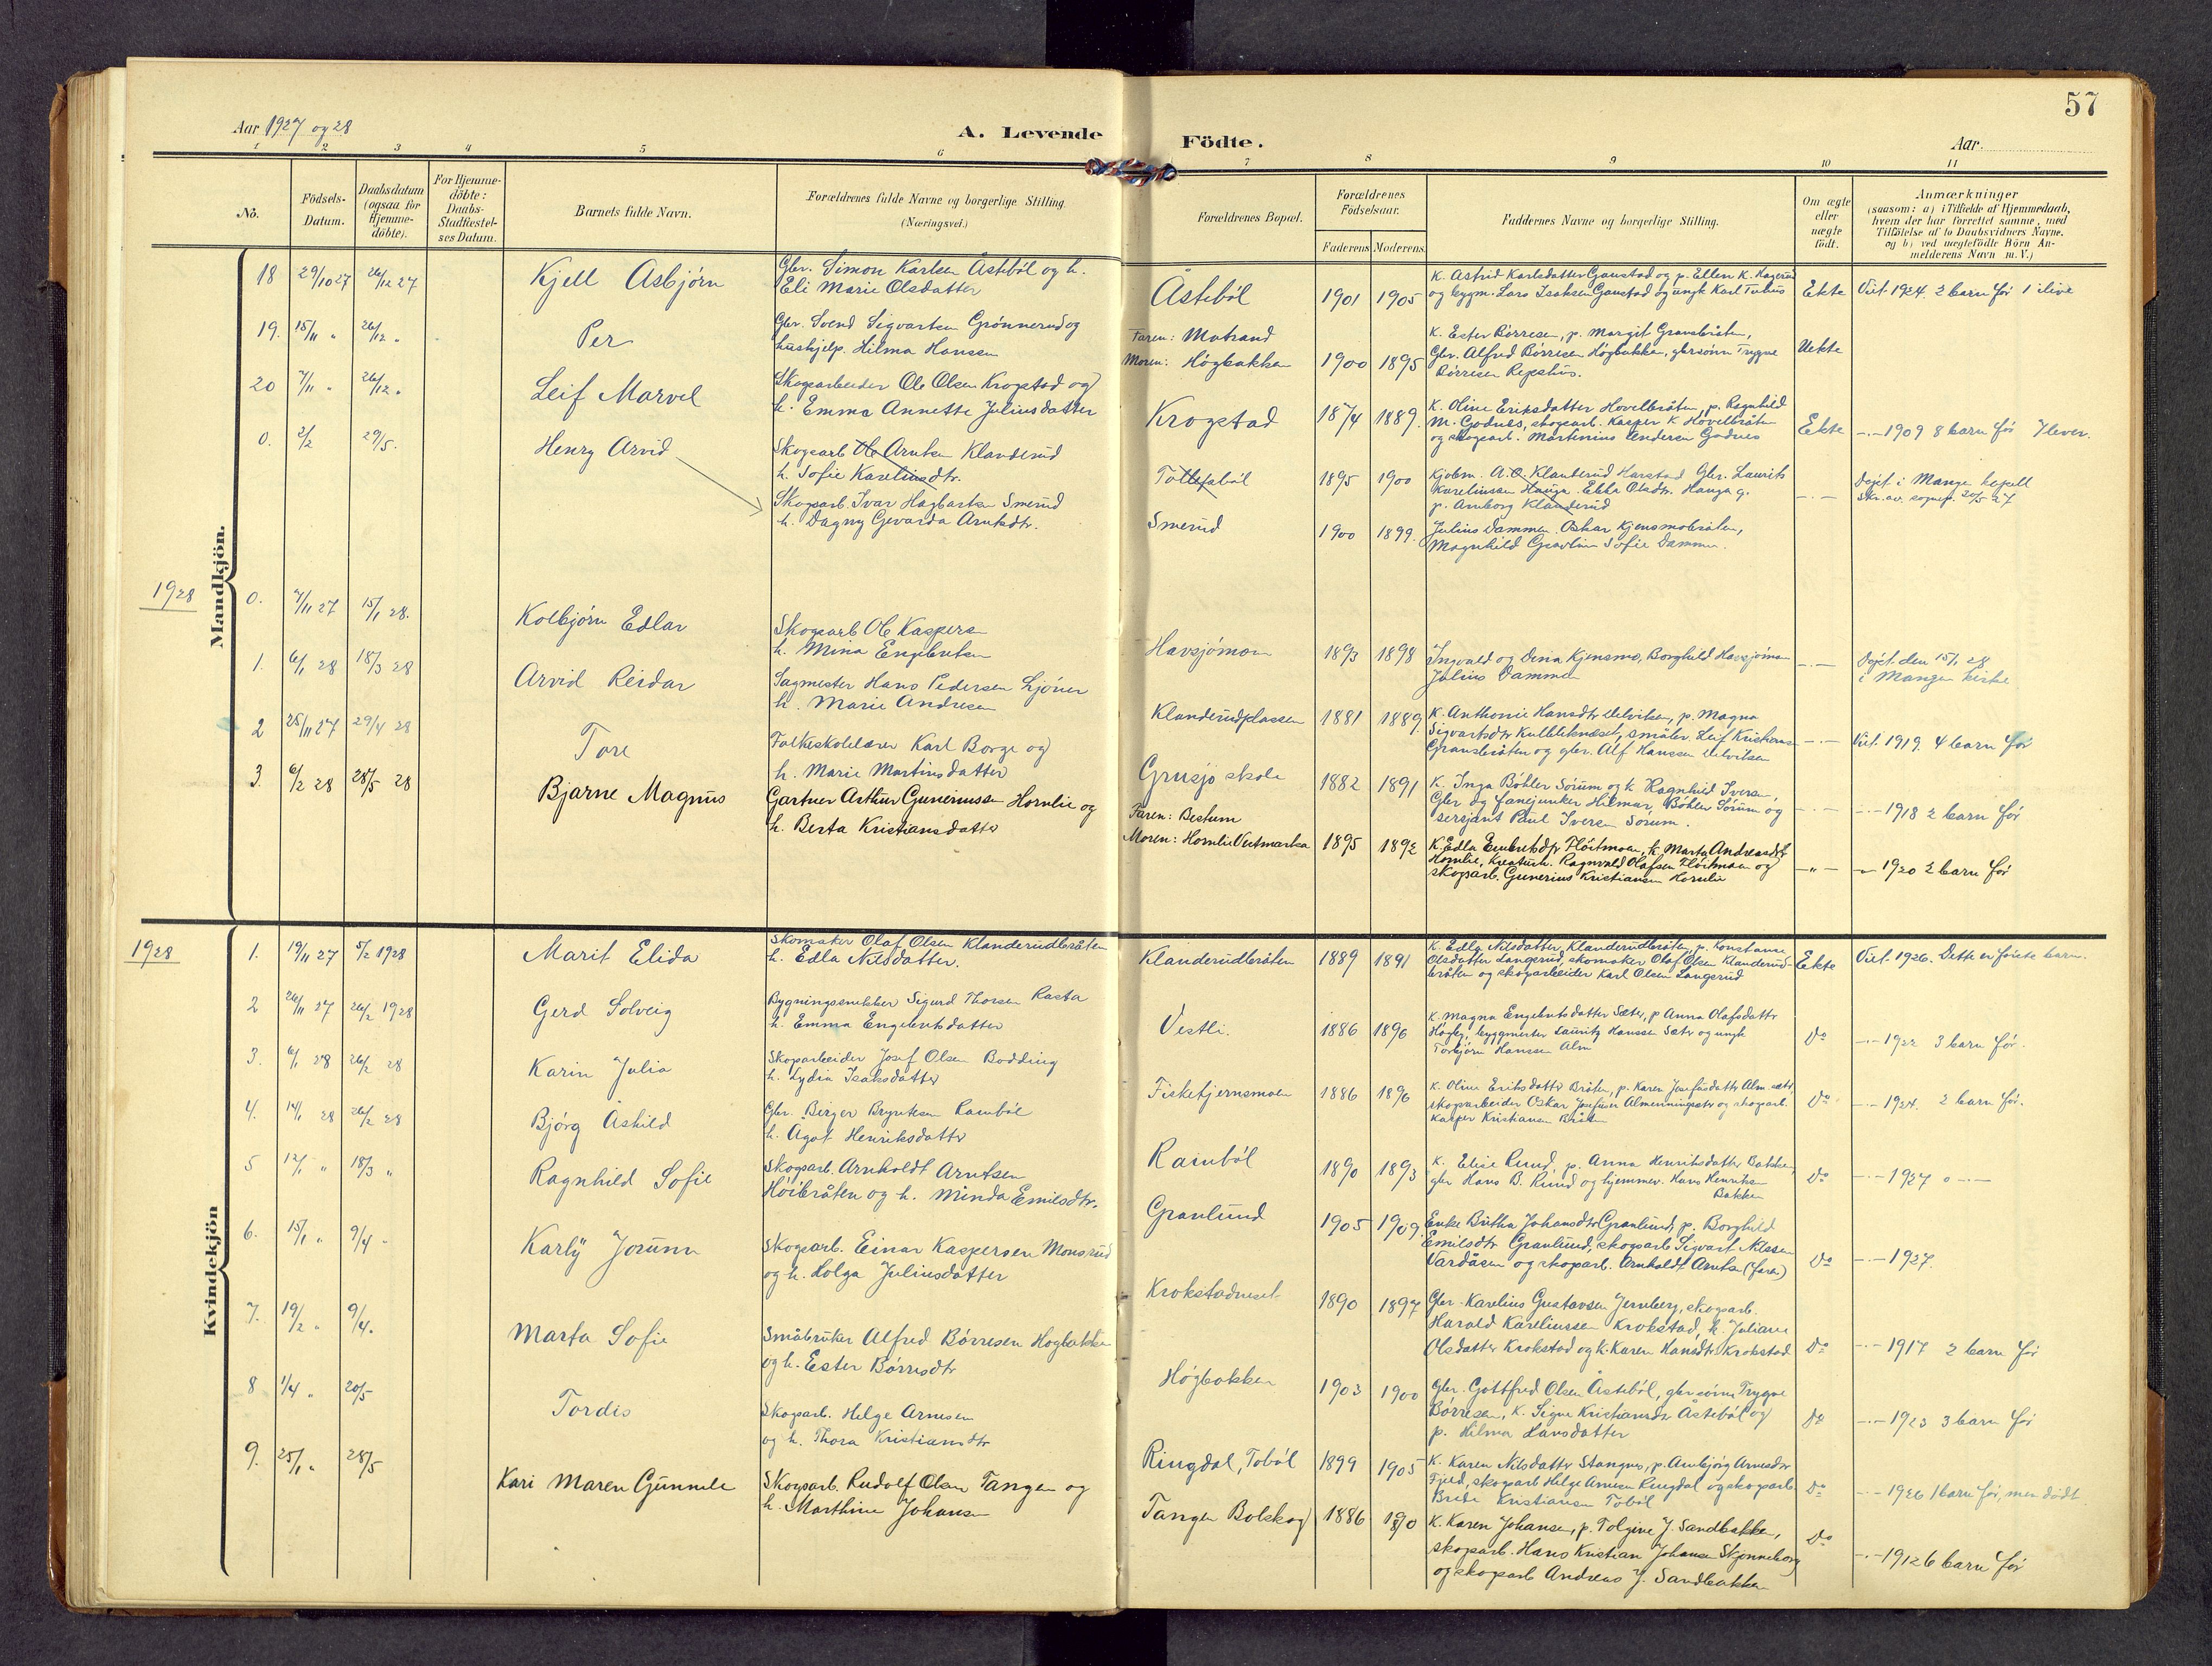 57
Aar 1927 og 28
A. Levende Födte.
Aar.
1 2 3 4 5 6 7 8 9 10 11
No.
Födsels-Datum.
Daabsdatum (ogsaa for Hjemme-döbte).
For Hjemme-döbte: Daabs-Stadfæstel-ses Datum.
Barnets fulde Navn.
Forældrenes fulde Navne og borgerlige Stilling.
(Næringsvei.)
Forældrenes Bopæl.
Forældrenes Födselsaar.
Faderens Moderens
Faddernes Navne og borgerlige Stilling.
Om ægte eller uægte födt.
Anmærkninger
(saasom: a) i Tilfælde af Hjemmedaab,
hvem der har forrettet samme, med
Tilföielse af to Daabsvidners Navne,
og b) ved uægtefödte Börn An-
melderens Navn m. V.)
Mandkjön.
18 29/10 27 26/12 27 Kjell Asbjørn
Gbr. Simon Karlsen Åstebøl og h.
Eli Marie Olsdatter
Åstebøl 1901 1905
K. Astrid Karlsdatter Gaustad og p. Ellen K.
og bygm. Lars Isaksen Gaustad og ungk Karl
Ekte Viet 1924. 2 barn før 1 ilive
19. 15/11 " 26/12 " Per
Gbr. Svend Sigvartsen Grønnerud og
hushjelp. Hilma Hansen
Faren: Matrand
Moren: Høgbakken 1900 1895
K. Ester Børresen, p. Margit Gransbråten,
Gbr. Alfred Børresen Høgbakken, gbrsønn Trygve
Børresen Repshus.
Uekte
20 7/11 " 26/12 " Leif Marvel
Skogsarbeider Ole Olsen Krogstad og
h. Emma Annette Juliusdatter
Krogstad 1874 1889.
K. Oline Eriksdatter Hovelbråten, p. Ragnhild
M. Godnes, skogsarb. Kasper K. Hovelbråten
og skogsarb. Martinius Endersen Godnes
Ekte -"- 1909 8 barn før 7 lever.
0. 2/2 29/5. Henry Arvid
Skogsarb Ole Arntsen Klanderud
h. Sofie Kareliusdtr.
Tollefsbøl 1895 1900
Kjøbm. A. O. Klanderud Harstad Gbr. Laurits
Kareliussen Hauga. Ebba Olsdtr. Hauga g.
p. Arnborg Klanderud
-"- Døpt i Mangen kapell
Skr. av sognepr. 20/5 27
Skogsarb. Ivar Hagbartsen Smerud
h. Dagny Gevarda Arntsdtr.
Smerud 1900 1899.
Julius Dammen, Oskar Kjensmobråten,
Magnhild Sofie Dammen.
1928
0. 7/11 27 15/1 28. Kolbjørn Edlar
Skogsarb Ole Kaspersen
h. Mina Engebretsen
Havsjømoen 1893 1898
Ingvald og Dina Kjensmo, Borghild Havsjømoen
Julius Dammen
-"- Døpt den 15/1 28
i Mangen kirke
1. 6/1 28 18/3 28 Arvid Reidar
Sagmester Hans Pedersen Sjøner
h. Marie Andresen
Klanderudplassen 1881 1889.
K. Anthonie Hansdtr Delviken, p. Magna
Sigvartsdtr Kulblikneset, småbr. Leif Kristiansen
Gransbråten og gbr. Alf Hanssen Delviken
-"- Viet. 1919. 4 barn før
2 25/11 27 29/4 28 Tore
Folkeskolelærer Karl Borge og
h. Marie Martinsdatter
Grusjø skole 1882 1891
K. Inga Bøhler Sørum og k Ragnhild Iversen,
Gbr og fanejunker Hilmar Bøhler Sørum og
sersjant Paul Iversen Sørum.
-"- -"- 1918 2 barn før
3. 6/2 28 28/5 28 Bjarne Magnus
Gartner Arthur Gunerius­sen Hornlie og
h. Berta Kristiansdatter
Faren: Bestum
Moren: Hornlie Vestmarka 1895 1892
K. Edla Embretsdtr Fløitmoen, k. Marta Andreasdtr
Hornlie, Kreaturh. Ragnvald Olafsen Fløitmoen og
skogsarb. Gunerius Kristiansen Hornlie
-"- -"- 1920 2 barn før
1928
Kvindekjön
1. 19/11 27 5/2 1928 Marit Elida
Skomaker Olaf Olsen Klanderudbråten
h. Edla Nilsdatter.
Klanderudbråten 1889 1891
K. Edla Nilsdatter, Klanderudbråten, p. Konstanse
Olsdatter Langerud, skomaker Olaf Olsen Klanderud-
bråten og skogsarbeider Karl Olsen Langerud
Ekte Viet. 1926. Dette er første barn.
2 26/11 27 26/2 1928 Gerd Solveig
Bygningssnekker Sigurd Thorsen Rasta
h. Emma Engebretsdatter
Vestli. 1886 1896
K. Magna Engebretsdatter Sæter, p Anna Olafsdatter
Høgby, byggmester Lauritz Hanssen Sæter og ungk
Torbjørn Hanssen Alm
Do -"- 1922 3 barn før.
3. 6/1 28 26/2 28 Karin Julia
Skogsarbeider Josef Olsen Bodding
h. Lydia Isaksdatter
Fisketjernsmoen 1886 1896
K. Oline Eriksdatter Bråten, p. Karen Josefusdatter Alm.sætr
skogsarbeider Oskar Josefusen Almenningsætr og skogsarb.
Kasper Kristiansen Bråten
Do -"- 1924. 2 barn før.
4. 14/1 28 26/2 28 Bjørg Åshild
Gbr. Birger Bryntesen Rambøl
h. Agot Henriksdatter
Rambøl 1890 1893
K. Elise Rund, p. Anna Henriksdatter Bakken
gbr Hans B. Rund og hjemmev. Hans Henriksen
Bakken
Do -"- 1927 0 -"-
5 12/1 " 18/3 " Ragnhild Sofie
Skogsarb. Arnholdt Arntsen
Høibråten og h. Minda Emilsdtr.
Granlund 1905 1909.
Enke Birtha Johansdtr Granlund, p. Borghild
Emilsdtr Granlund, skogsarb Sigvart Nilssen
Vardåsen og skogsarb. Arnholdt Arntsen (faren)
Do -"- 1927.
6. 15/1 " 9/4 " Karly Jorunn
Skogsarb. Einar Kaspersen Monsrud
og h. Holga Juliusdatter
Krokstadneset 1890 1897
Gbr. Karelius Gustavsen Jernberg, skogsarb.
Harald Kareliussen Krokstad, k. Juliane
Olsdatter Krokstad og k. Karen Hansdtr. Krokstad
Do -"- 1917 2 barn før
7. 19/2 " 9/4. Marta Sofie
Småbruker Alfred Børresen Høgbakken
og h. Ester Børresdtr
Høgbakken 1903 1900
Gbr. Gottfred Olsen Åstebøl, gbrsønn Trygve
Børresen, K. Signe Kristiansdtr Åstebøl og
p. Hilma Larsdatter
Do -"- 1923 3 barn før
8 1/4 " 20/5 Tordis
Skogsarb. Helge Arnesen
og h. Thora Kristiansdtr
Ringdal, Tobøl 1899 1905
K. Karen Nilsdatter Stangnes, p. Ambjørg Arnesdtr
Fjeld, skogsarb Helge Arnesen Ringdal og skogsarb.
Brede Kristiansen Tobøl
Do -"- 1926 1 barn før, men dødt.
9. 25/1 " 28/5 Kari Maren Gunnele
Skogsarb. Rudolf Olsen Tangen og
h. Marthine Johansen
Tangen Bolskog 1886 1890
K. Karen Johansen, p. Tolgine J. Sandbakken,
skogsarb. Hans Kristian Johansen Skjønneborg
og skogsarb Andreas J. Sandbakken
Do -"- 1912 6 barn før